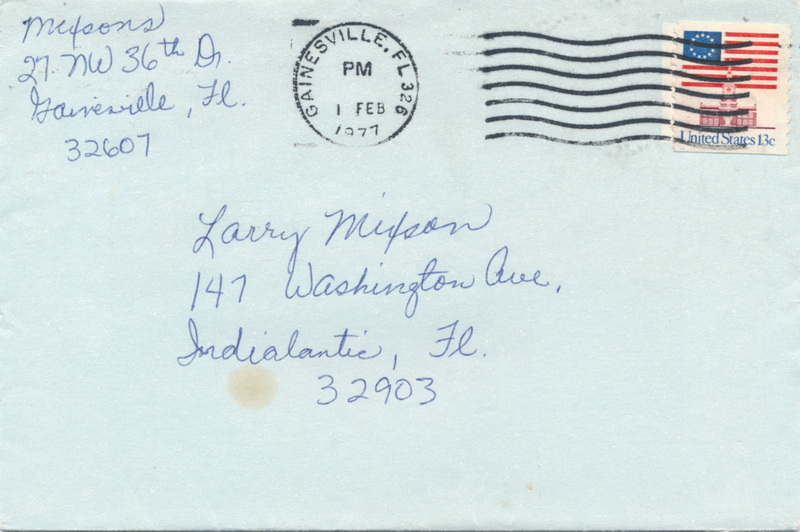 Mixsons
27 NW 36th Dr.
Gainesville, Fl.
32607
GAINESVILLE, FL 326
PM
1 FEB
1977
United States 13c
Larry Mixson
147 Washington Ave,
Indialantic, Fl.
32903